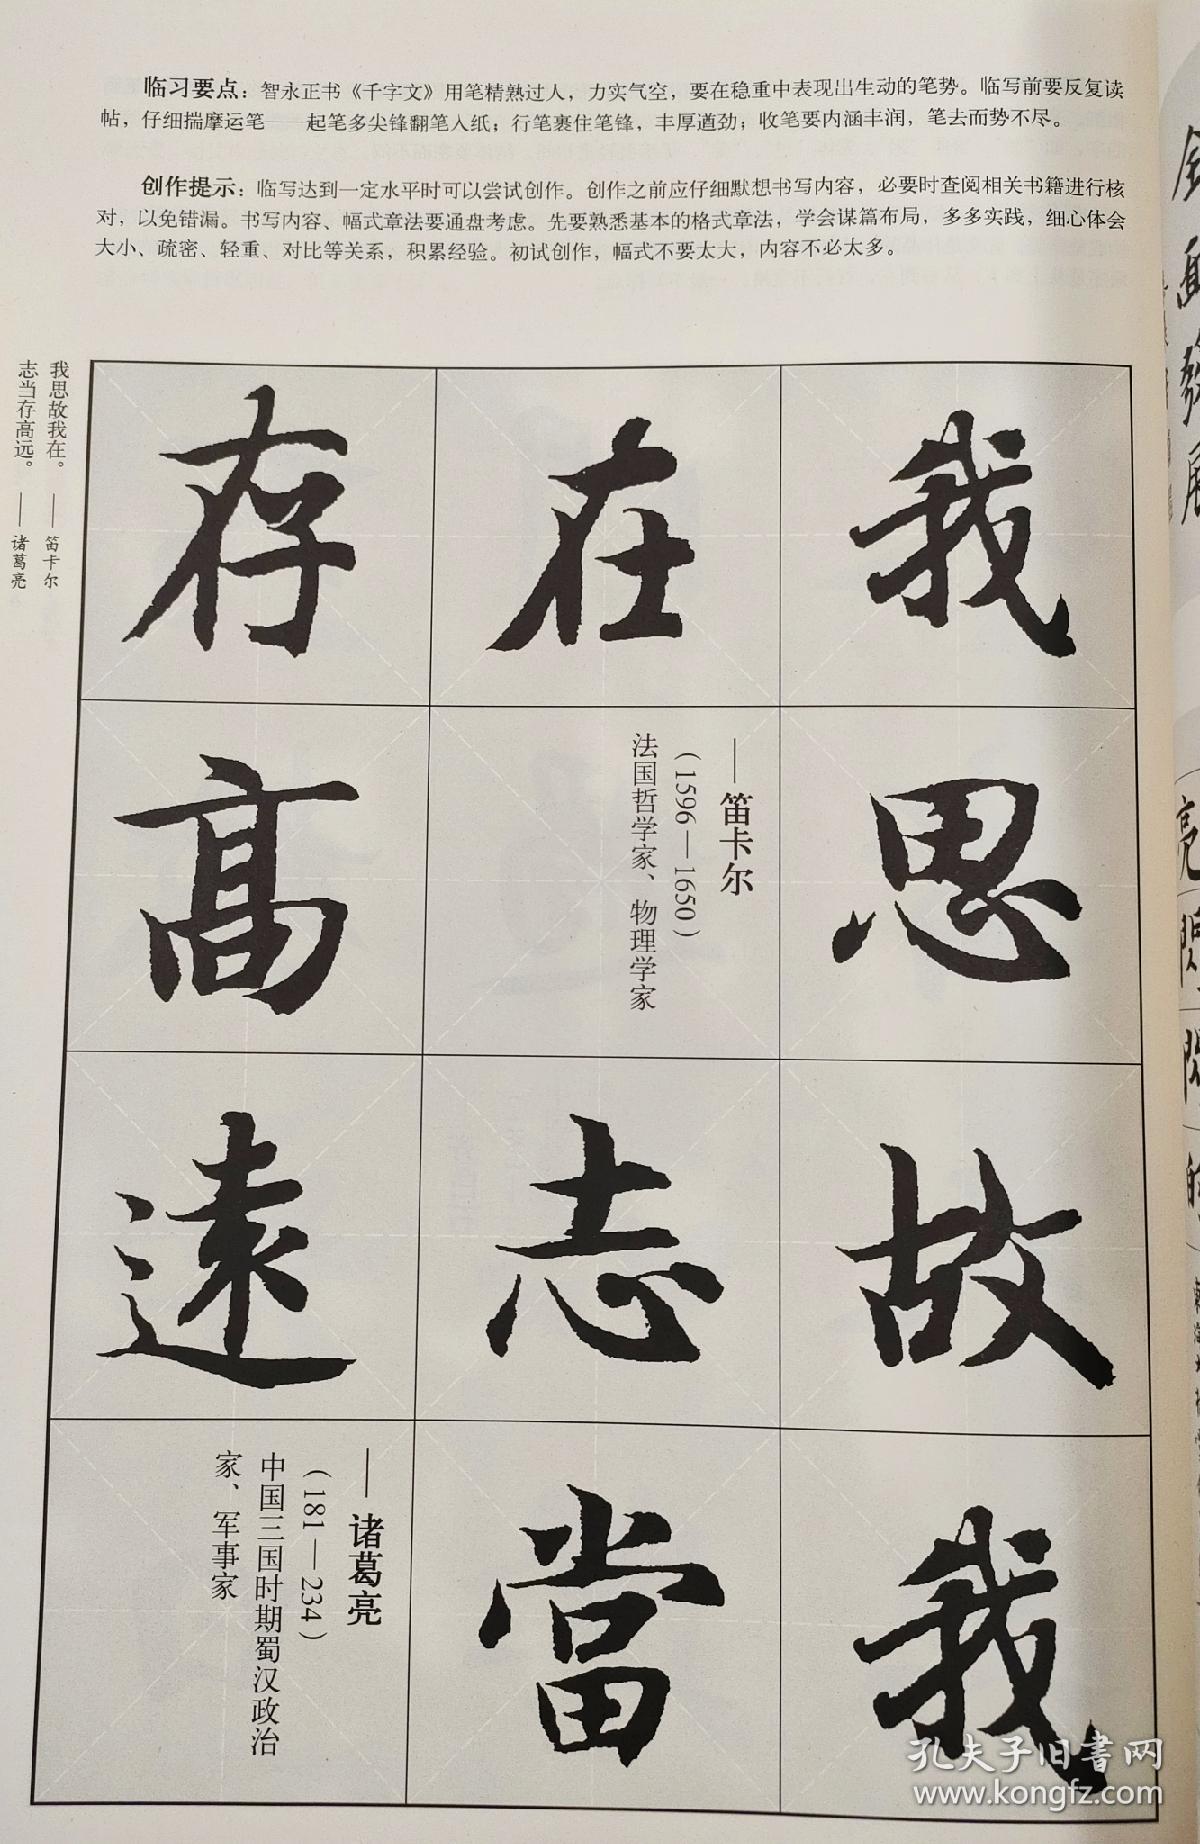 临习要点：智永正书《千字文》用笔精熟过人，力实气空，要在稳重中表现出生动的笔势。临写前要反复读
帖，仔细揣摩运笔——起笔多尖锋翻笔入纸；行笔裹住笔锋，丰厚遒劲；收笔要内涵丰润，笔去而势不尽。
创作提示：临写达到一定水平时可以尝试创作。创作之前应仔细默想书写内容，必要时查阅相关书籍进行核
对，以免错漏。书写内容、幅式章法要通盘考虑。先要熟悉基本的格式章法，学会谋篇布局，多多实践，细心体会
大小、疏密、轻重、对比等关系，积累经验。初试创作，幅式不要太大，内容不必太多。
我思故我
在
——笛卡尔
（1596—1650）
法国哲学家、物理学家
志當
存高遠
——诸葛亮
（181—234）
中国三国时期蜀汉政治
家、军事家
我思故我在。——笛卡尔
志当存高远。——诸葛亮
全面發展
亮
的
孔夫子旧書网
www.kongfz.com